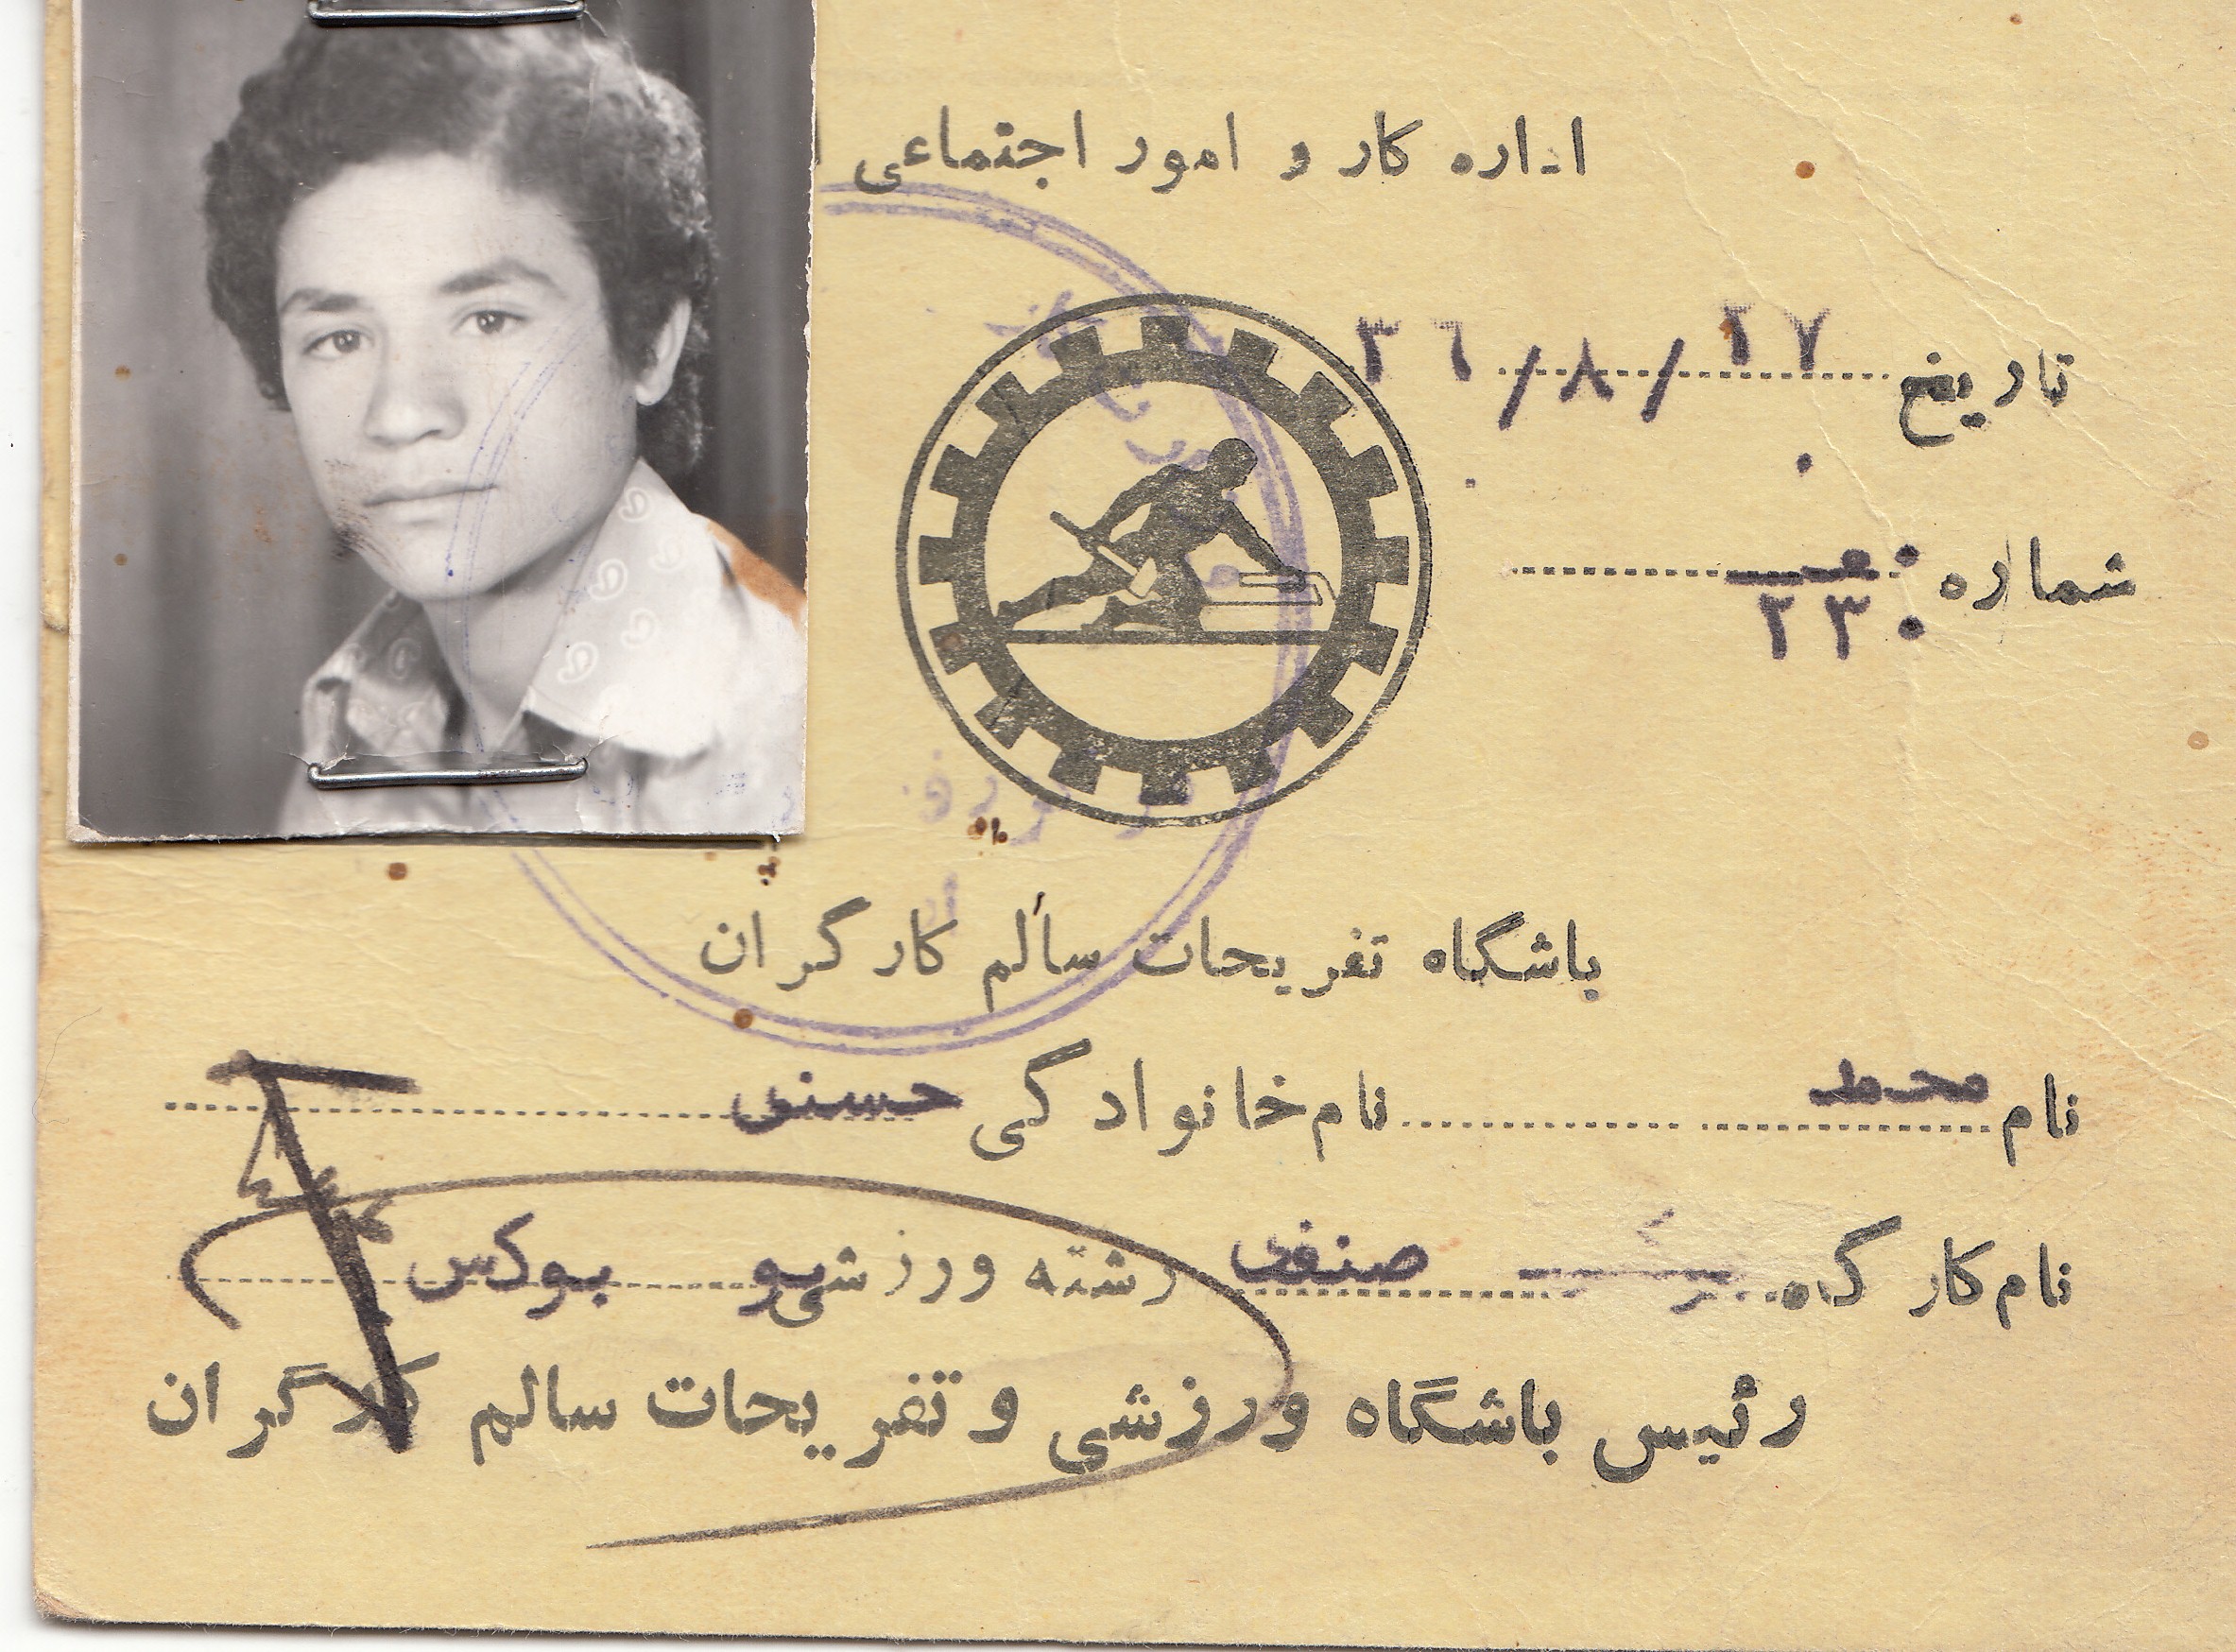 اداره کار و امور اجتماعی
تاریخ ۳۶/۸/۲۷
شماره : ۲۳
باشگاه تفریحات سالم کارگران
نام محمد نام خانوادگی حسنی
نام کارگاه صنفی رشته ورزشی بوکس
رئیس باشگاه ورزشی و تفریحات سالم کارگران